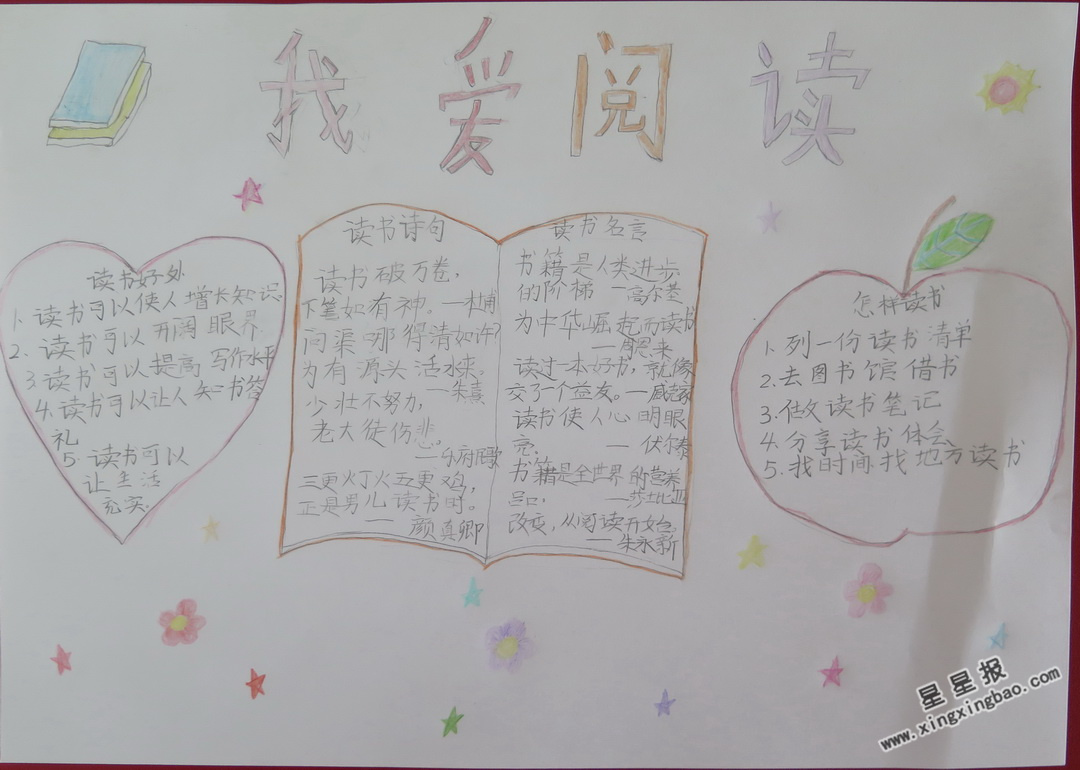 我爱阅读
读书好处
1. 读书可以使人增长知识
2. 读书可以开阔眼界
3. 读书可以提高写作水平
4. 读书可以让人知书答
礼
5. 读书可以
让生活
充实.
读书诗句
读书破万卷，
下笔如有神。—杜甫
问渠哪得清如许？
为有源头活水来。
—朱熹
少壮不努力，
老大徒伤悲。
—乐府
三更火丁火五更鸡，
正是男儿读书时。
— 颜真卿
读书名言
书籍是人类进步
的阶梯 —高尔基
为中华崛起而读书
—周恩来
读过一本好书，就像
交了一个益友。—臧克家
读书使人心明眼
亮。 — 伏尔泰
书籍是全世界的营养
品. —莎士比亚
改变，从阅读开始。
— 朱永新
怎样读书
1. 列一份读书清单
2. 去图书馆借书
3. 做读书笔记
4. 分享读书体会
5. 找时间找地方读书
星星报
www.xingxingbao.com